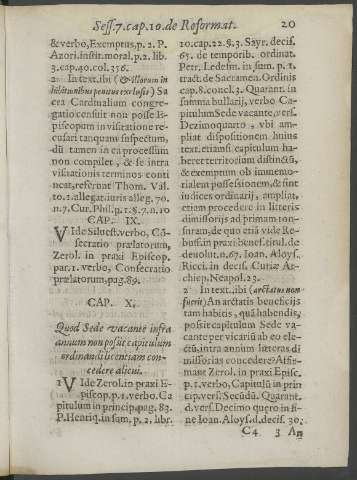 Sess.7.cap.10.de Reformat. 20
& verbo, Exemptus, p. 2. P.
Azori. instit. moral. p.2. lib.
3. cap.40. col. 376.
2 In text. ibi (& illorum in
habitionibus penitus exclusis) Sa
cra Cardinalium congre-
gatio censuit non posse E-
piscopum in visitatione re-
cusari tanquam suspectum,
dū tamen in eu processum
non compilet, & se intra
visitationis terminos conti
neat, referunt Thom. Val.
to. 2. allegat. iuris alleg. 70.
n.7. Cur. Phil. p. 1. §. 7. n. 10
CAP. IX.
VIde Silvest. verbo, Cō-
secratio prælatorum,
Zerol. in praxi Episcop.
par. 1. verbo, Consecratio
prælatorum, pag. 89.
CAP. X.
Quod Sede vacante infra
annum non possit capitulum
ordinandi licentiam con-
cedere alicui.
1 VIde Zerol. in praxi E-
piscop. p. 1. verbo, Ca
pitulum in princip. pag. 83.
P. Henriq. in sum, p. 2. libr.
10. cap. 22. §. 3. Sayr. decis.
65. de temporib. ordinat.
Petr. Ledesm. in sum. p. 1.
tract. de Sacramen. Ordinis
cap. 8. concl. 3. Quarant. in
summa bullarij, verbo Ca-
pitulum Sede vacante, vers.
Dezimoquarto, vbi am-
pliat dispositionem huius
text. etiamsi capitulum ha-
beret territorium distinctū,
& exemptum ob immemo-
rialem possessionem, & sint
iudices ordinarij, ampliat,
etiam procedere in litteris
dimissorijs ad primam ton-
suram, de quo etiā vide Re
buf. in praxi benef. titul. de
devolut. n. 67. Ioan. Aloys.
Ricci. in decis. Curiæ Ar-
chiep. Neapol. 23.
2 In text. ibi (arctatus non
fuerit) An arctatis beneficijs
tam habitis, quā habendis,
possit capitulum Sede va-
cante per vicariū ab eo ele-
ctū, intra annum litteras di
missorias concedere? Affir-
mant Zerol. in praxi Episc.
p. 1. verbo, Capitulū in prin
cip. vers. Secūdū. Quarant.
d. vers. Decimo quęro in fi-
ne Ioan. Aloys. d. decis. 30.
C4 3 An